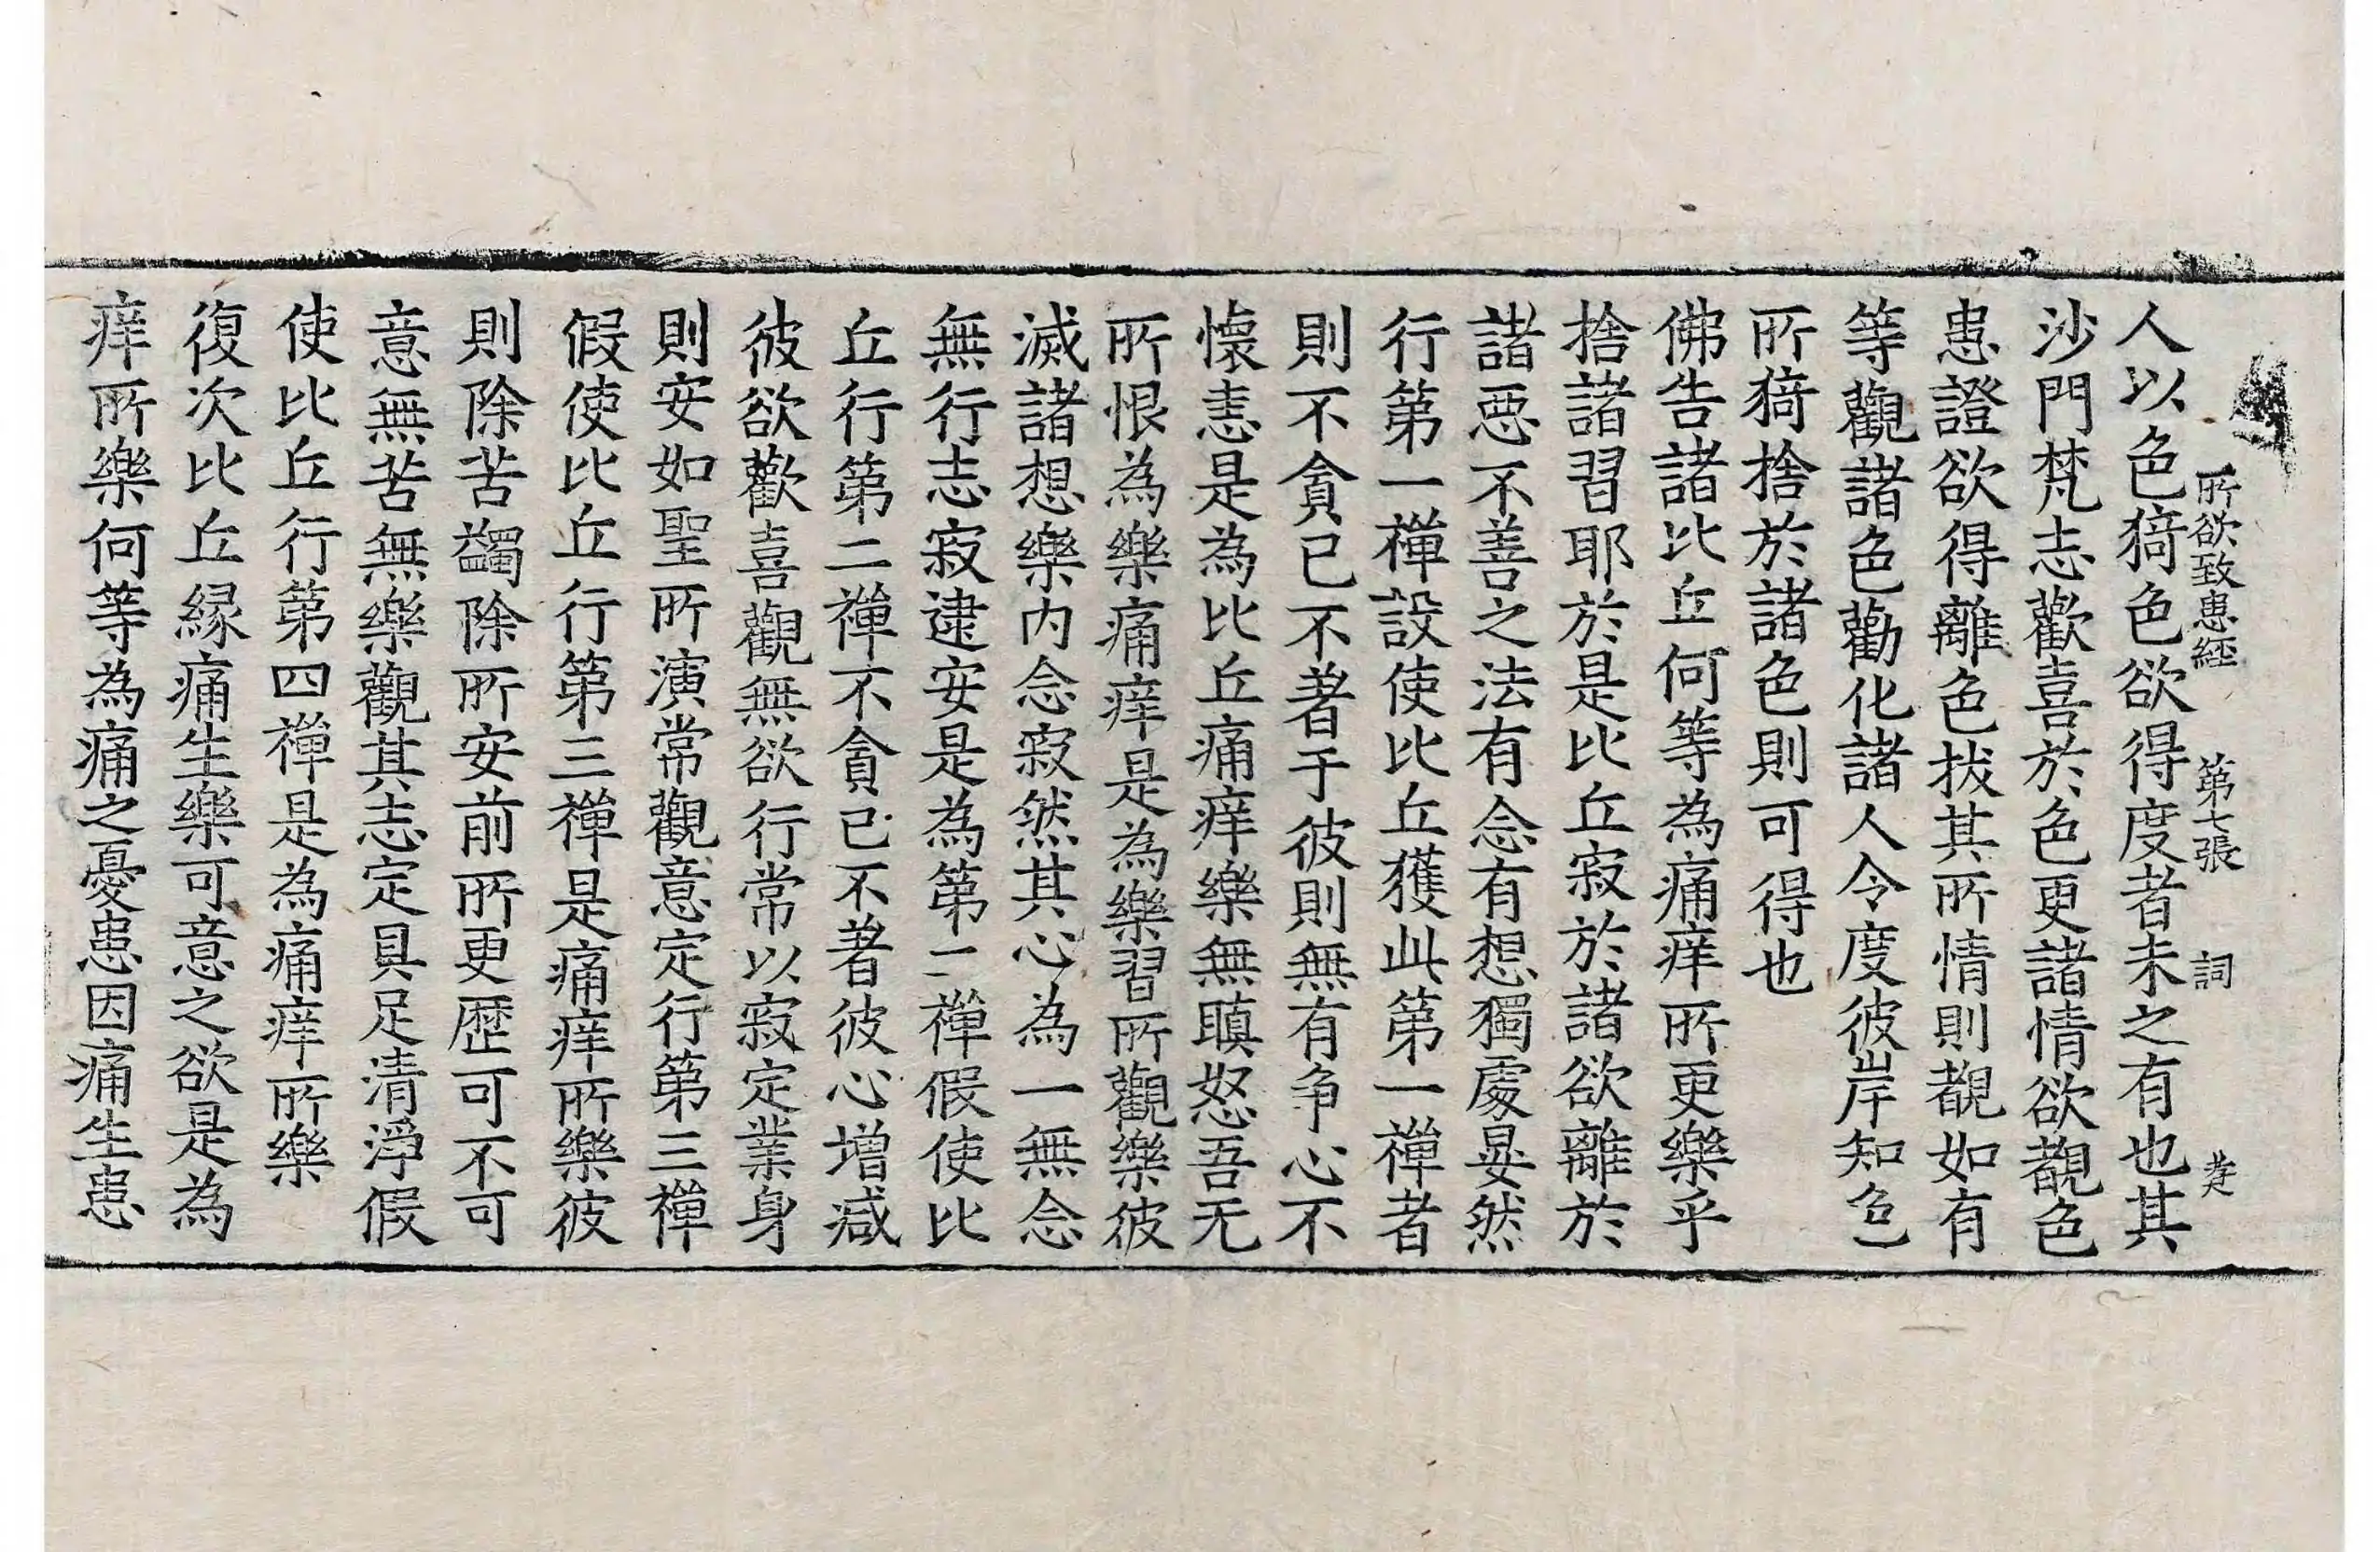 所欲致患經 第七張 詞
人以色猗色欲得度者未之有也其
沙門梵志歡喜於色更諸情欲覩色
患證欲得離色拔其所情則覩如有
等觀諸色勸化諸人令度彼岸知色
所猗捨於諸色則可得也
佛告諸比丘何等為痛痒所更樂乎
捨諸習耶於是比丘寂於諸欲離於
諸惡不善之法有念有想獨處晏然
行第一禪設使比丘獲此第一禪者
則不貪已不著于彼則無有争心不
懷恚是為比丘痛痒樂無瞋怒吾无
所恨為樂痛痒是為樂習所觀樂彼
滅諸想樂内念寂然其心為一無念
無行志寂逮安是為第二禪假使比
丘行第二禪不貪已不著彼心增減
彼欲歡喜觀無欲行常以寂定業身
則安如聖所演常觀意定行第三禪
假使比丘行第三禪是痛痒所樂彼
則除苦蠲除所安前所更歷可不可
意無苦無樂觀其志定具足清淨假
使比丘行第四禪是為痛痒所樂
復次比丘緣痛生樂可意之欲是為
痒所樂何等為痛之憂患因痛生患